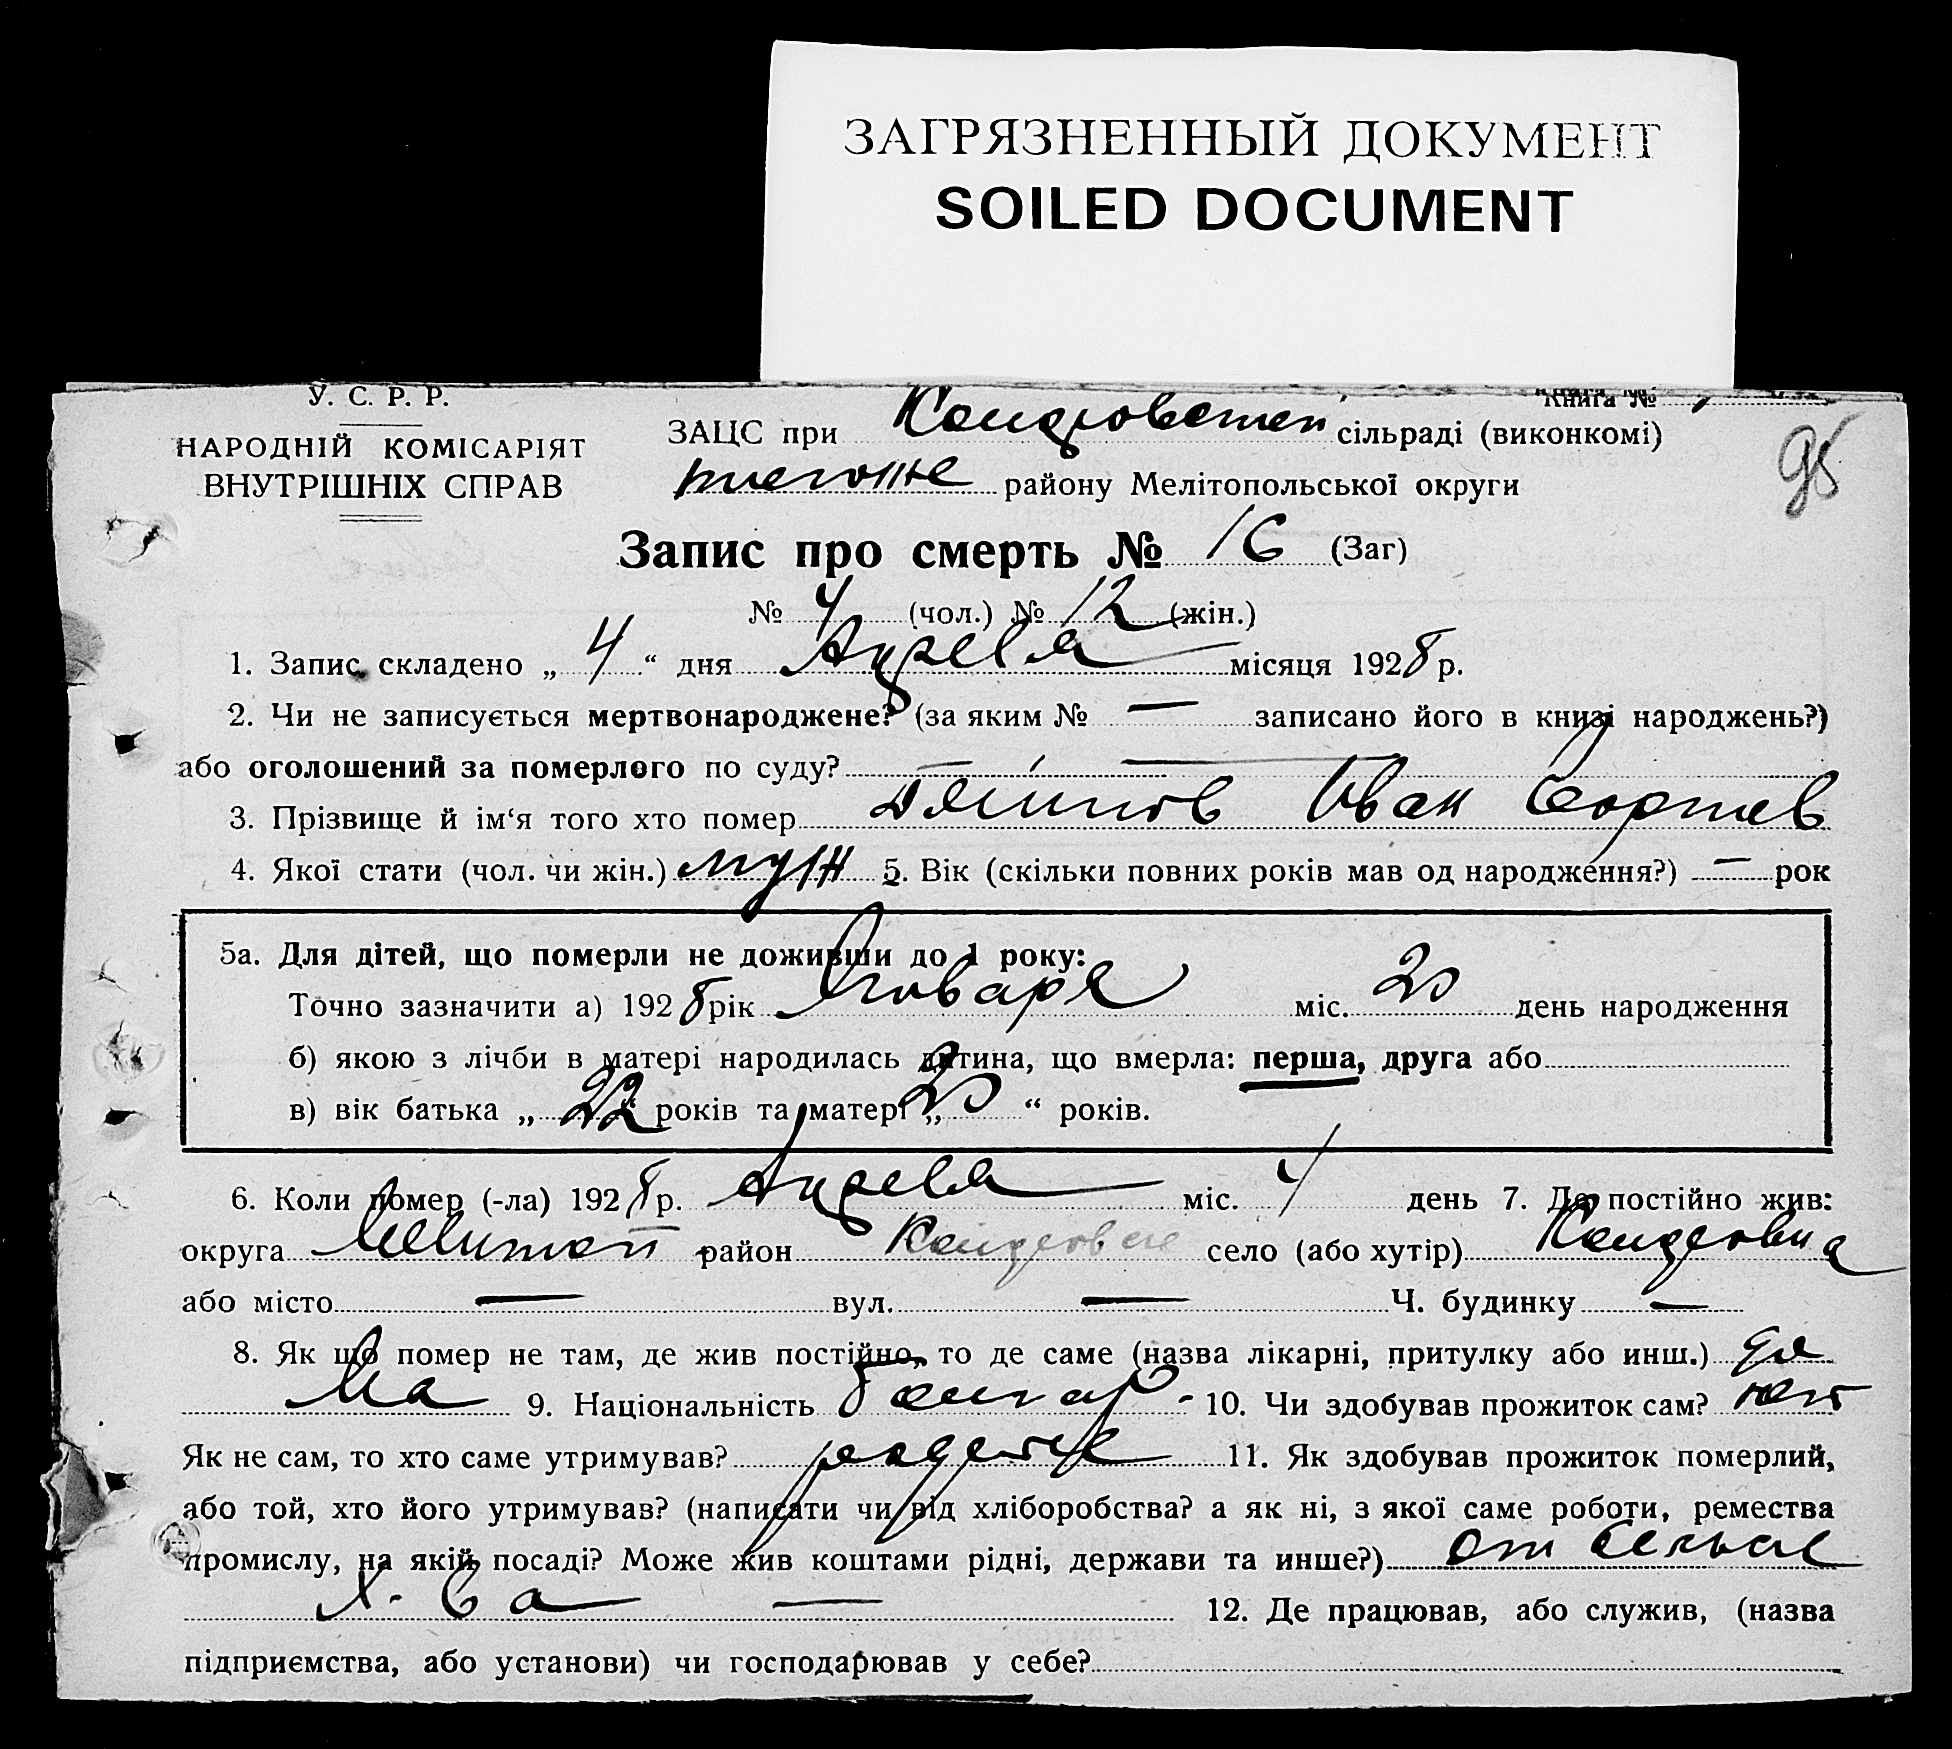 ЗАГРЯЗНЕННЫЙ ДОКУМЕНТ
SOILED DOCUMENT
У. С. Р. Р.
НАРОДНІЙ КОМІСАРІЯТ
ВНУТРІШНІХ СПРАВ
Книга №
ЗАЦС при сільраді (виконкомі)
району Мелітопольської округи
95
Запис про смерть № 16 (Заг)
№ 4 (чол.) № 12 (жін.)
1. Запис складено „ 4 “ дня Апреля місяця 1928 р.
2. Чи не записується мертвонароджене? (за яким № — записано його в книзі народжень?)
або оголошений за померлого по суду? — —
3. Прізвище й ім‘я того хто помер Иван
4. Якої стати (чол. чи жін.) муж 5. Вік (скільки повних років мав од народження?) — рок
5а. Для дітей, що померли не доживши до 1 року:
Точно зазначити а) 1928 рік Января міс. 20 день народження
б) якою з лічби в матері народилась дитина, що вмерла: перша, друга або
в) вік батька „ 22 “ років та матері „ 20 “ років.
6. Коли помер (-ла) 1928 р. Апреля міс. 4 день 7. Де постійно жив:
округа Мелитоп район село (або хутір)
або місто — вул. — Ч. будинку —
8. Як що помер не там, де жив постійно, то де саме (назва лікарні, притулку або инш.) до
ма 9. Національність болгар 10. Чи здобував прожиток сам? нет
Як не сам, то хто саме утримував? родители 11. Як здобував прожиток померлий,
або той, хто його утримував? (написати чи від хліборобства? а як ні, з якої саме роботи, ремества
промислу, на якій посаді? Може жив коштами рідні, держави та инше?) от сельск
х-ва — 12. Де працював, або служив, (назва
підприємства, або установи) чи господарював у себе?